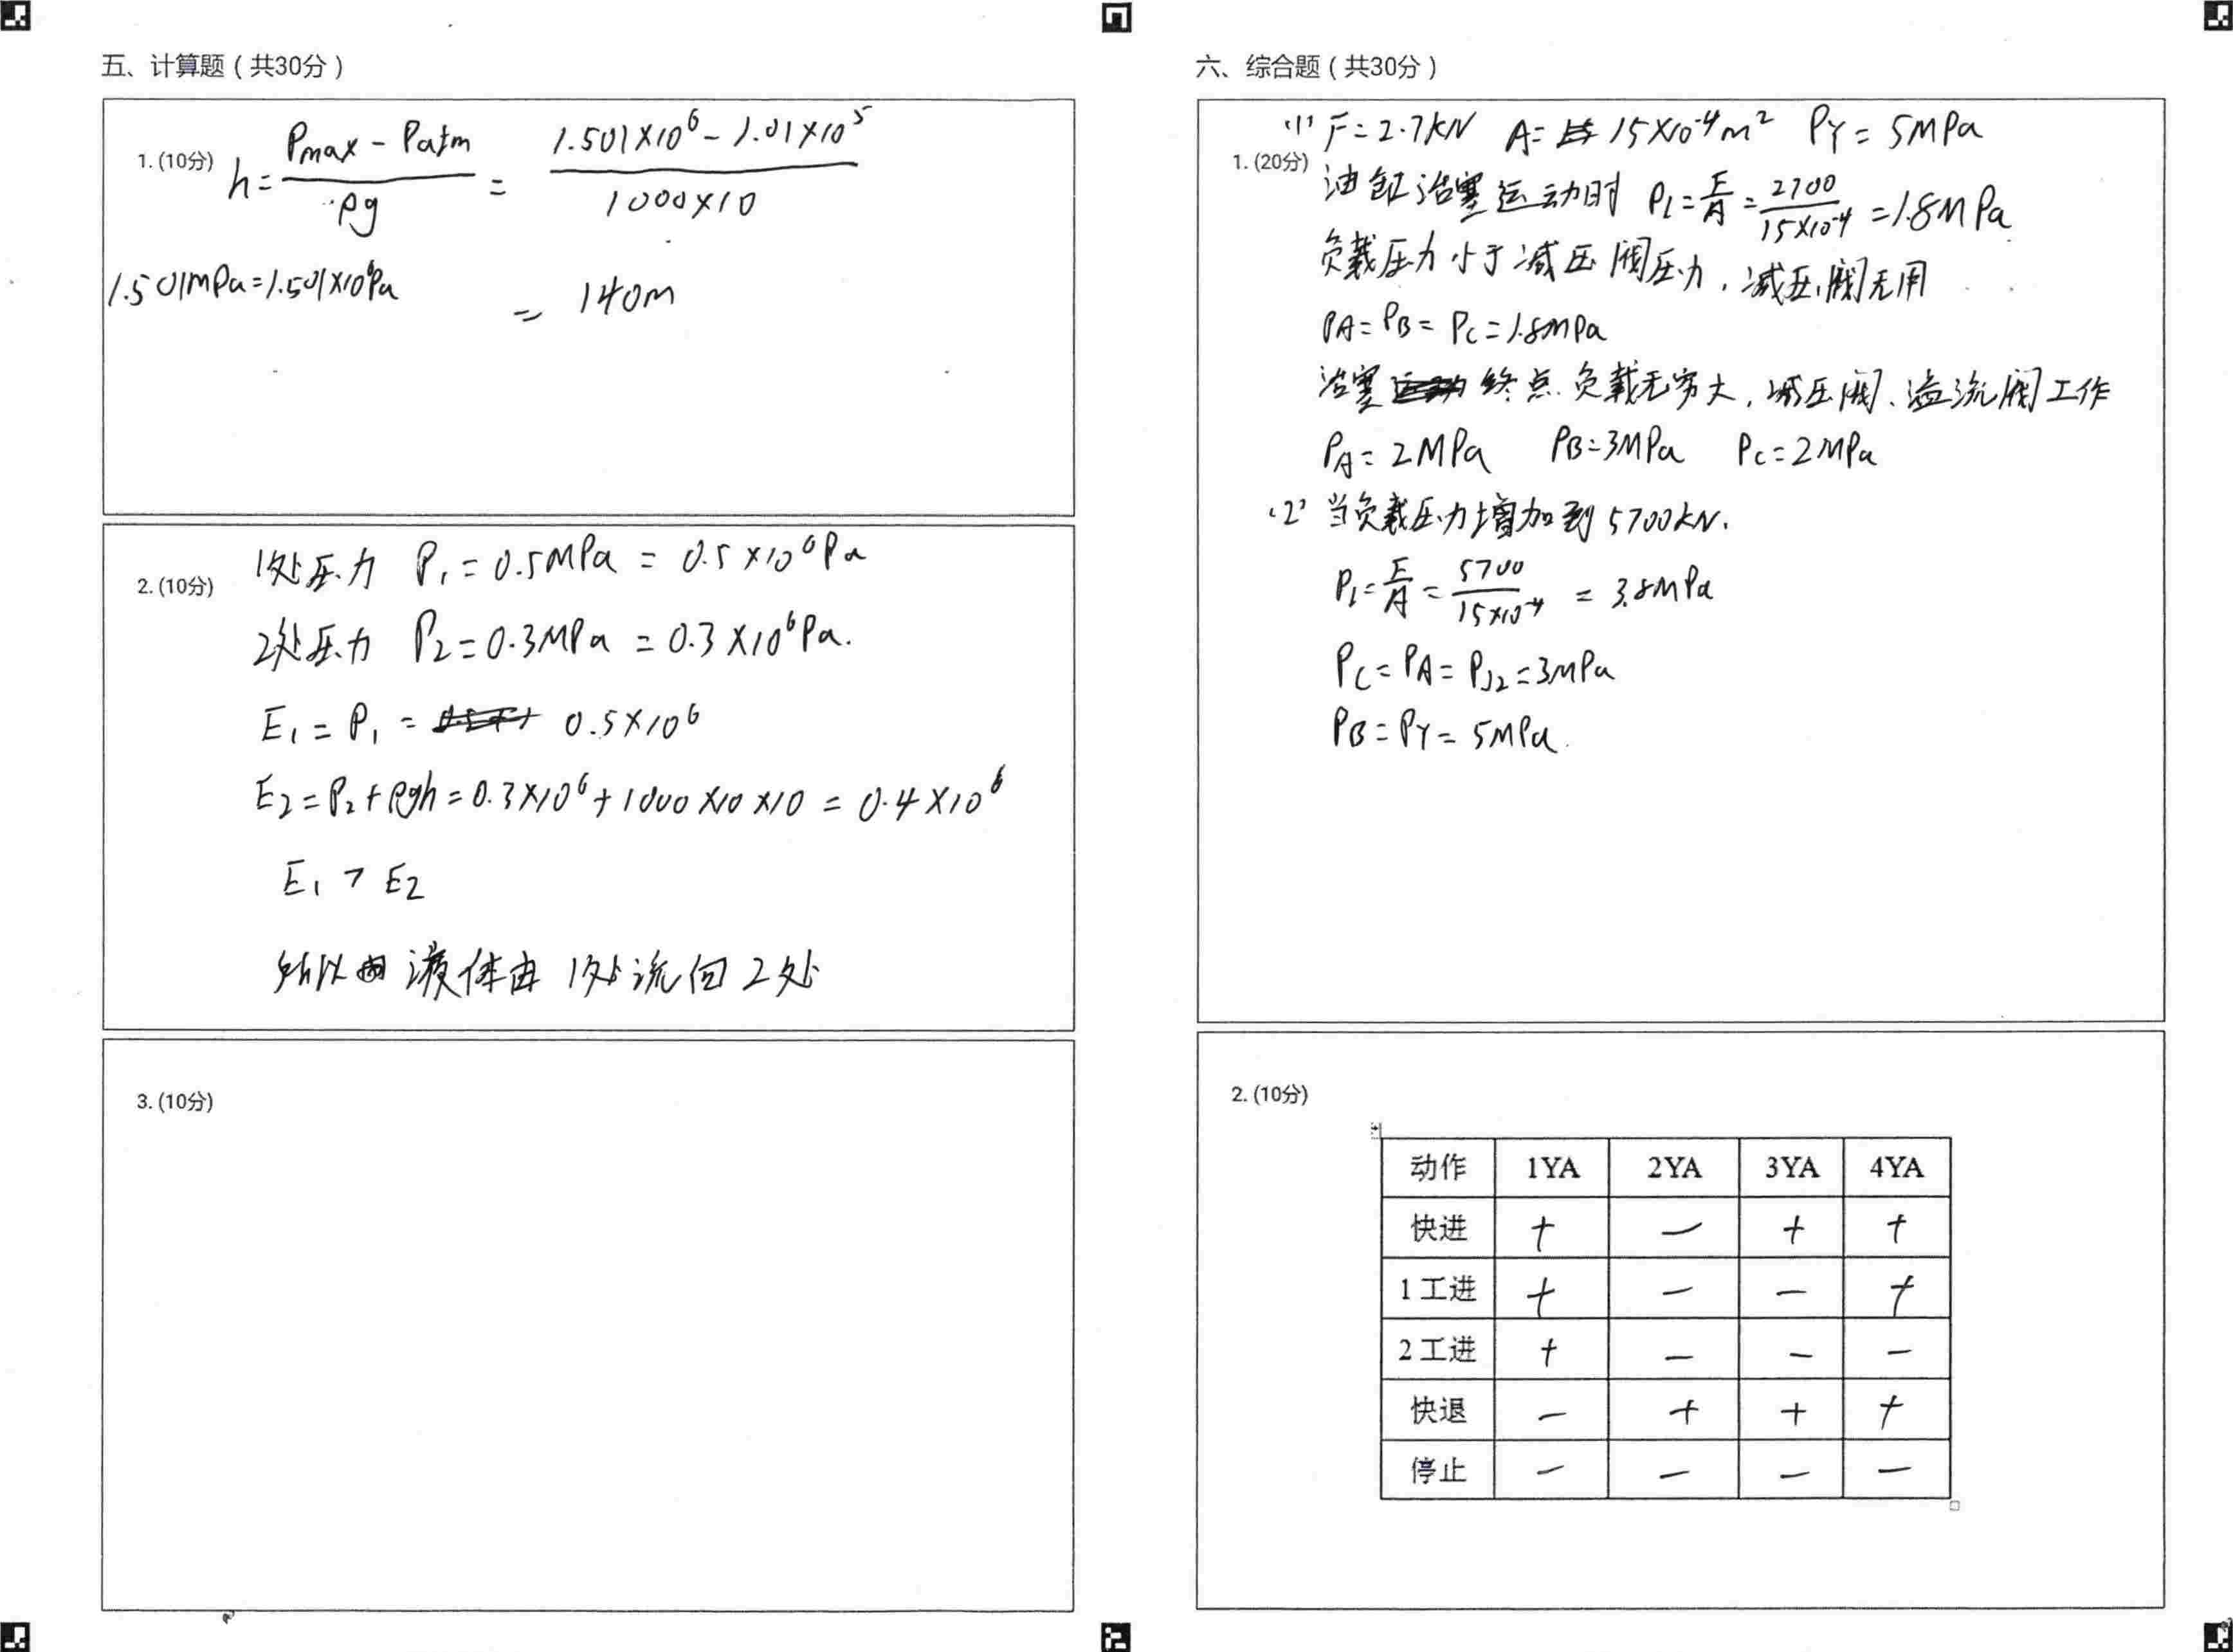 五、计算题（共30分）
1. (10分)
h = (Pmax - Patm) / ρg = (1.501×10⁶ - 1.01×10⁵) / (1000×10)
1.501MPa=1.501×10⁶Pa
= 140m
2. (10分)
1处压力 P₁ = 0.5MPa = 0.5×10⁶Pa
2处压力 P₂ = 0.3MPa = 0.3×10⁶Pa.
E₁ = P₁ = 0.5×10⁶
E₂ = P₂ + ρgh = 0.3×10⁶ + 1000×10×10 = 0.4×10⁶
E₁ > E₂
所以 液体由 1处流向2处
3. (10分)
六、综合题（共30分）
1. (20分)
(1) F=2.7KN A= 15×10⁻⁴m² PY = 5MPa
油缸活塞运动时 PL = F/A = 2700 / (15×10⁻⁴) = 1.8MPa
负载压力小于减压阀压力，减压阀无用
PA = PB = PC = 1.8MPa
活塞 终点.负载无穷大，减压阀、溢流阀工作
PA = 2MPa PB = 3MPa PC = 2MPa
(2) 当负载压力增加到 5700KN.
PL = F/A = 5700 / (15×10⁻⁴) = 3.8MPa
PC = PA = PJ2 = 3MPa
PB = PY = 5MPa.
2. (10分)
动作 1YA 2YA 3YA 4YA
快进 + − + +
1工进 + − − +
2工进 + − − −
快退 − + + +
停止 − − − −